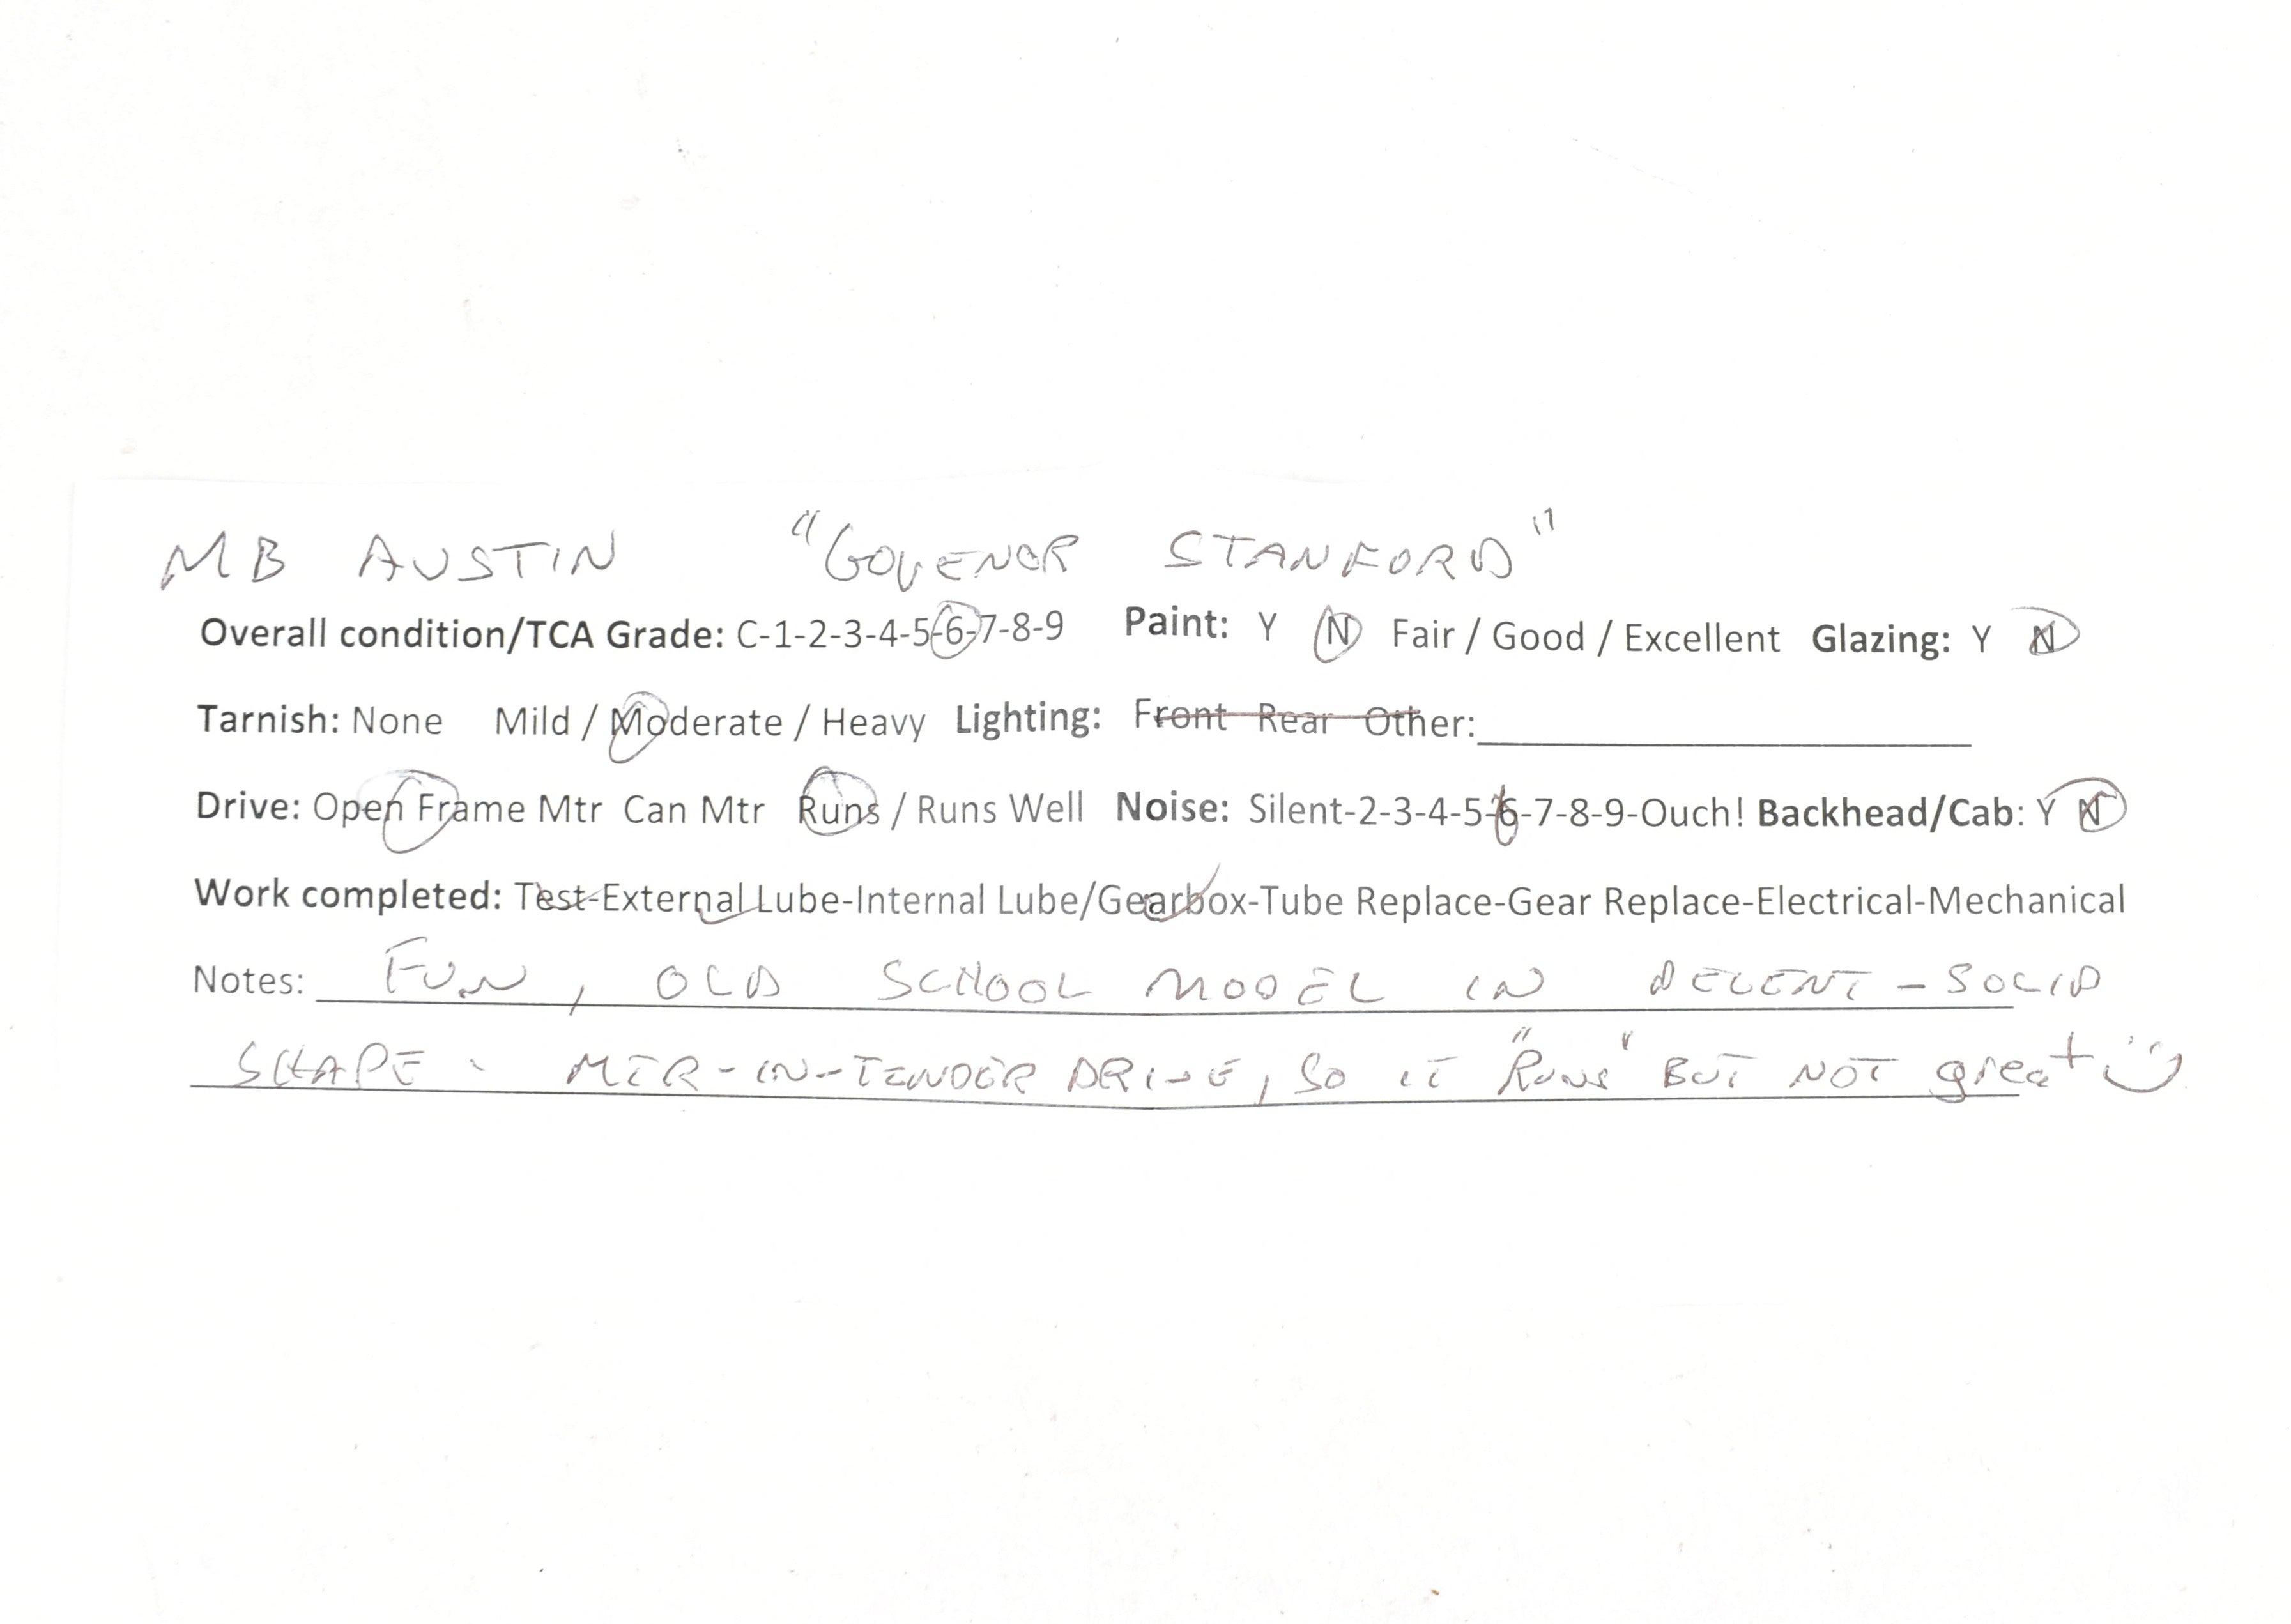 MB AUSTIN "GOVENOR STANFORD"
Overall condition/TCA Grade: C-1-2-3-4-5-6-7-8-9 Paint: Y N Fair / Good / Excellent Glazing: Y N
Tarnish: None Mild / Moderate / Heavy Lighting: Front Rear Other:
Drive: Open Frame Mtr Can Mtr Runs / Runs Well Noise: Silent-2-3-4-5-6-7-8-9-Ouch! Backhead/Cab: Y N
Work completed: Test-External Lube-Internal Lube/Gearbox-Tube Replace-Gear Replace-Electrical-Mechanical
Notes: FUN, OLD SCHOOL MODEL IN DECENT-SOLID
SHAPE. MTR-IN-TENDER DRIVE, SO IT "RUNS" BUT NOT great